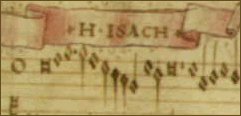 H·ISACH